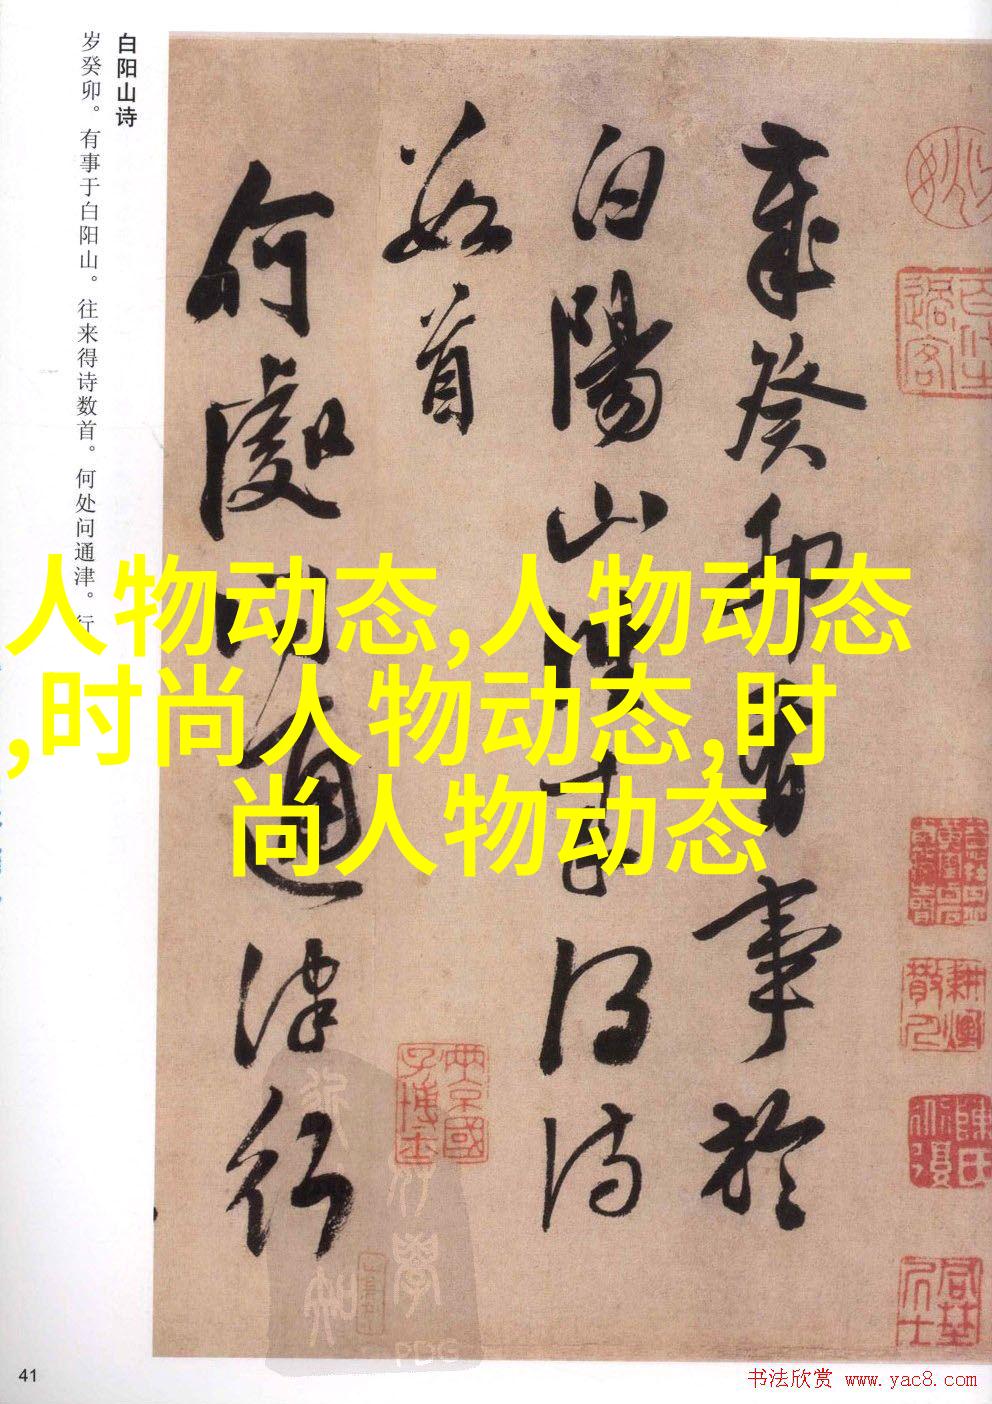 白阳山诗
岁癸卯。有事于白阳山。往来得诗数首。何处问通津。行
歲癸卯有事於
白陽山往来得诗
数首
何處问通津行
人物动态,人物动态
,时尚人物动态,时
尚人物动态
41
书法欣赏 www.yac8.com
PDG